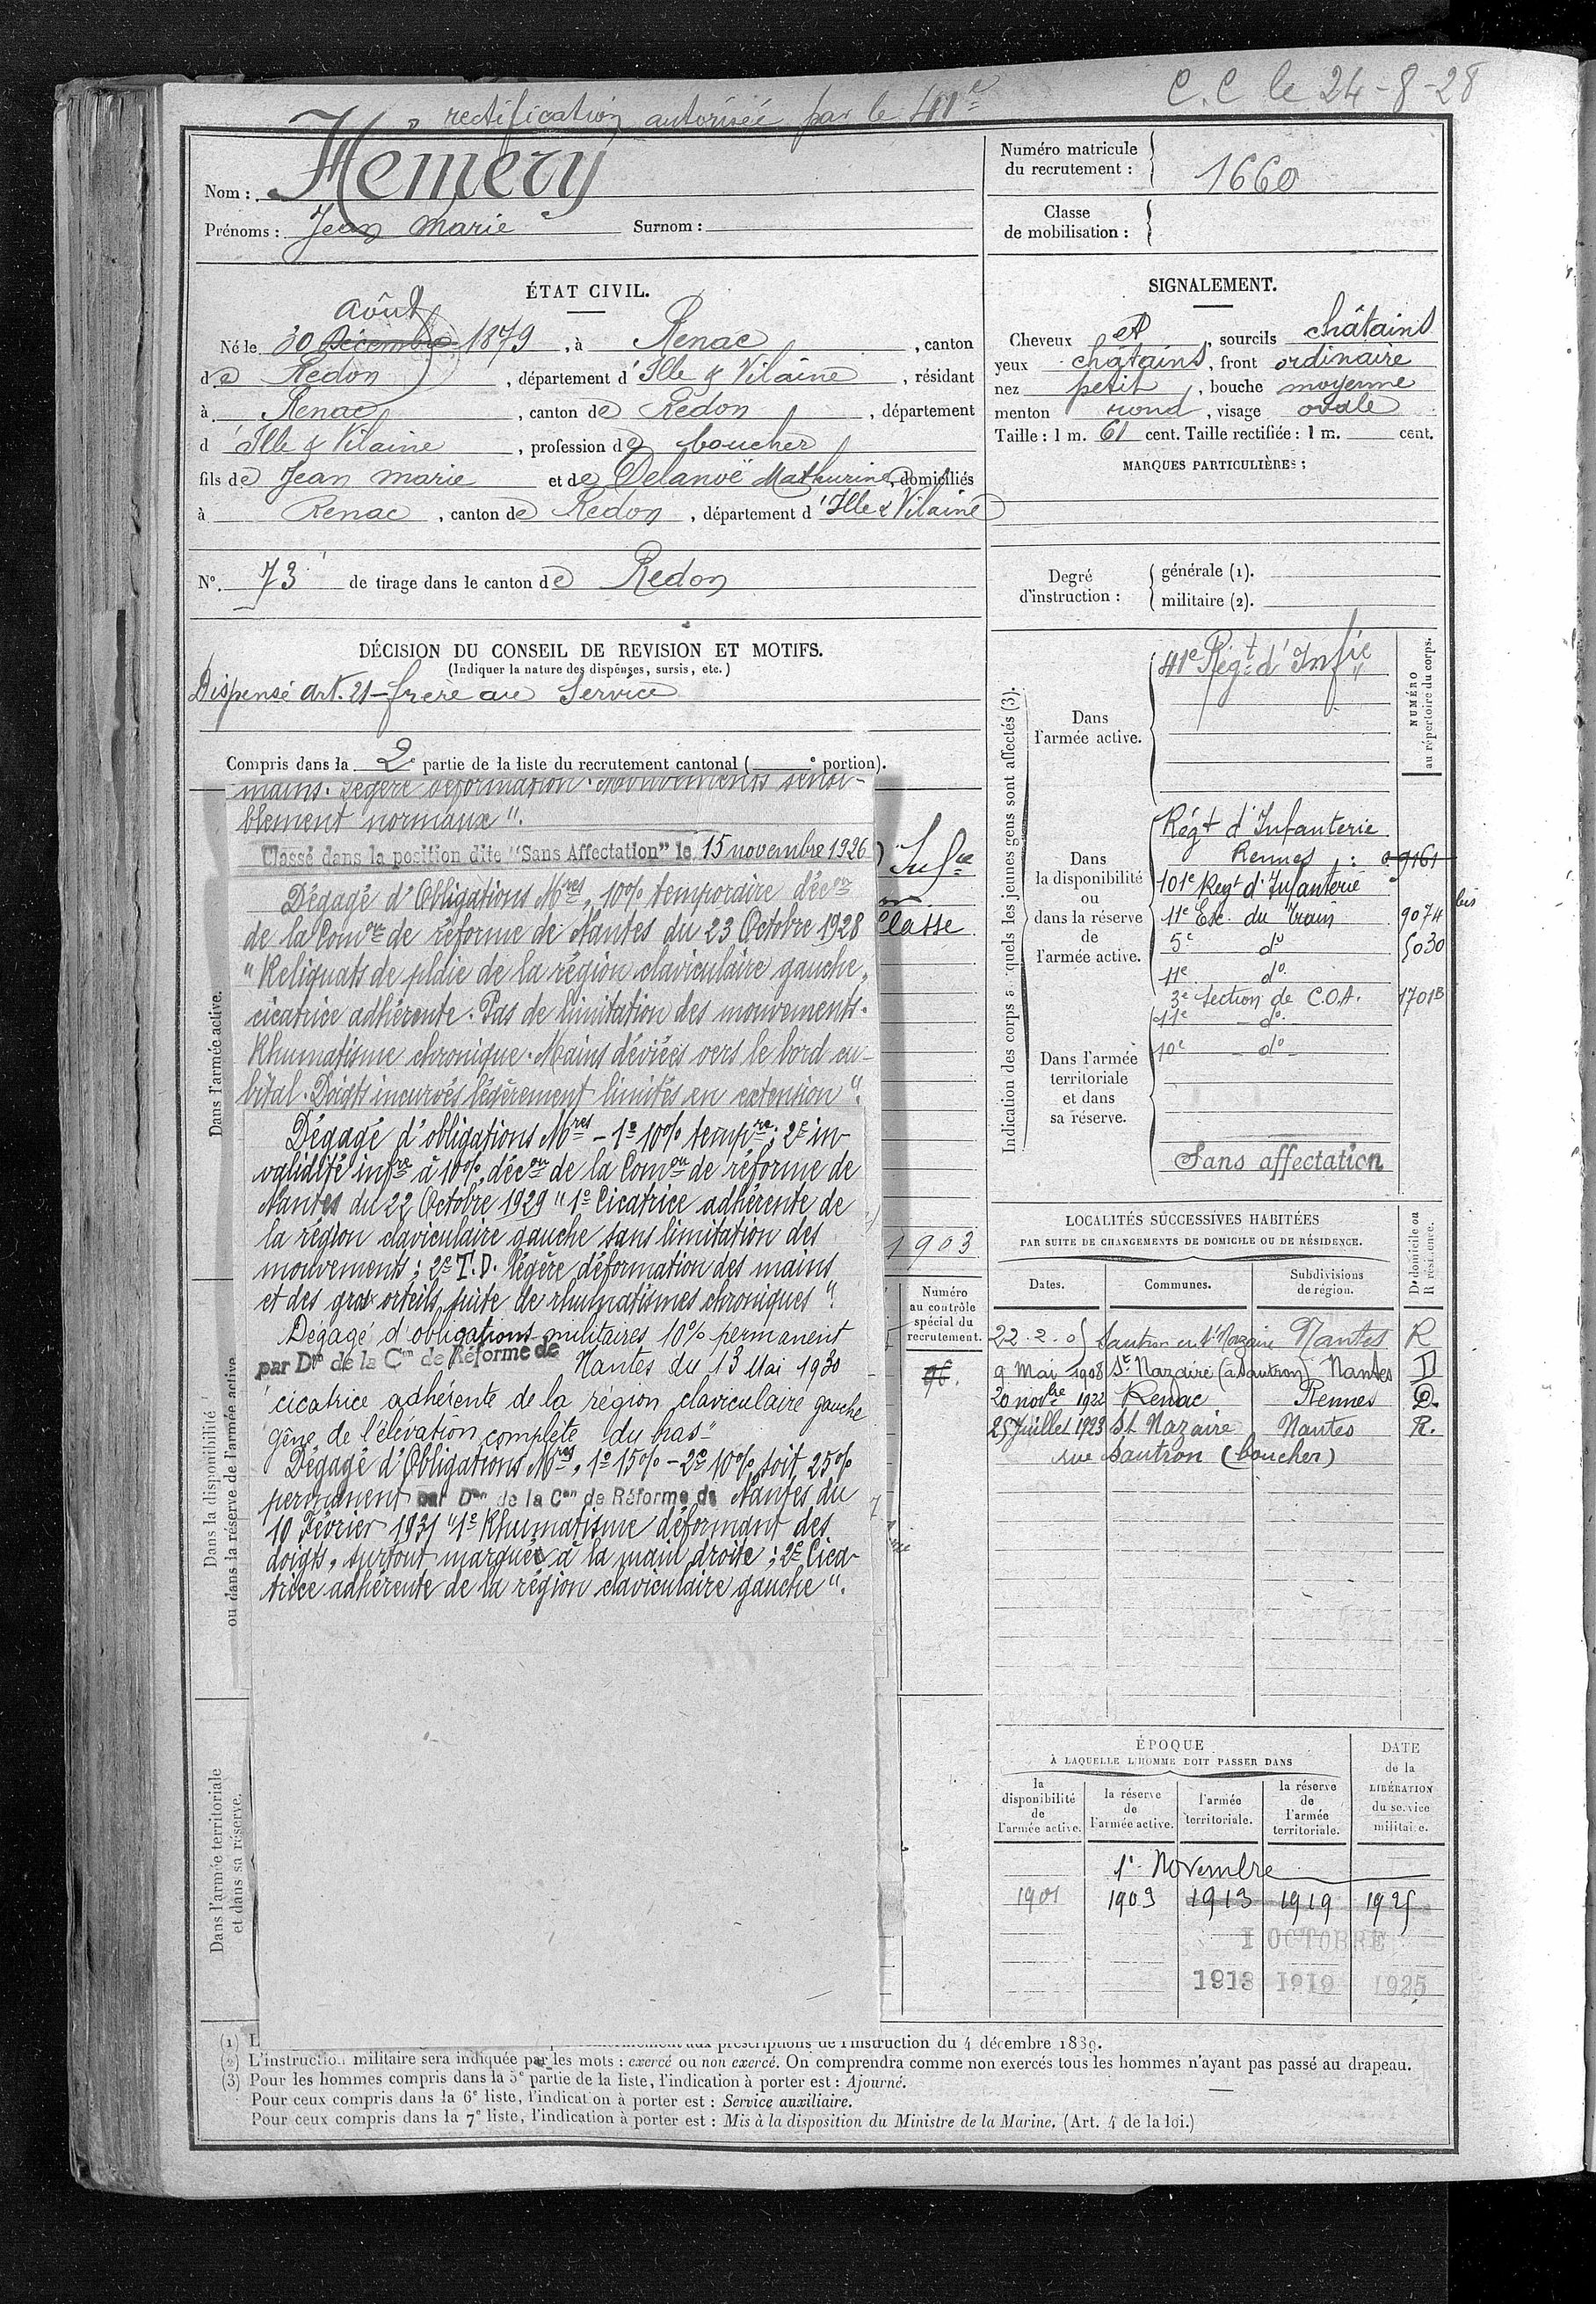 rectification autorisée par le 41e
C.C le 24-8-28
Nom : Hemery
Prénoms : Jean Marie Surnom :
Numéro matricule
du recrutement : 1660
Classe
de mobilisation :
ÉTAT CIVIL.
Août
Né le 30 Décembre 1879, à Renac, canton
de Redon, département d'Ille & Vilaine, résidant
à Renac, canton de Redon, département
d'Ille & Vilaine, profession de boucher
fils de Jean Marie et de Delanoë Mathurine, domiciliés
à Renac, canton de Redon, département d'Ille & Vilaine
N°. 73 de tirage dans le canton de Redon
DÉCISION DU CONSEIL DE REVISION ET MOTIFS.
(Indiquer la nature des dispenses, sursis, etc.)
Dispensé Art. 21 - frère au Service
Compris dans la 2e partie de la liste du recrutement cantonal ( e portion).
SIGNALEMENT.
Cheveux et, sourcils châtains
yeux châtains, front ordinaire
nez petit, bouche moyenne
menton rond, visage ovale
Taille : 1 m. 61 cent. Taille rectifiée : 1 m. cent.
MARQUES PARTICULIÈRES :
Degré
d'instruction :
générale (1).
militaire (2).
Dans l'armée active.
mains. Légère déformation. Mouvements sensi-
blement normaux".
Classé dans la position dite "Sans Affectation" le 15 novembre 1926
Dégagé d'Obligations Mres, 10% temporaire décon
de la Comon de réforme de Nantes du 23 Octobre 1928
"Reliquats de plaie de la région claviculaire gauche,
cicatrice adhérente. Pas de limitation des mouvements.
Rhumatisme chronique. Mains déviées vers le bord cu-
bital. Doigts incurvés légèrement limités en extension".
Dégagé d'obligations Mres - 1° 10% tempre; 2° in-
validité infre à 10%, décon de la Comon de réforme de
Nantes du 22 Octobre 1929 "1° Cicatrice adhérente de
la région claviculaire gauche sans limitation des
mouvements; 2° T.D. légère déformation des mains
et des gros orteils suite de rhumatismes chroniques".
Dégagé d'obligations militaires 10% permanent
par Don de la Con de Réforme de Nantes du 13 Mai 1930
"cicatrice adhérente de la région claviculaire gauche
gêne de l'élévation complète du bras"
Dégagé d'Obligations Mres, 1° 15% - 2° 10% soit 25%
permanent par Don de la Con de Réforme de Nantes du
10 Février 1931 "1° Rhumatisme déformant des
doigts, surtout marquée à la main droite; 2° Cica-
trice adhérente de la région claviculaire gauche".
Infie
Classe
1903
Numéro
au contrôle
spécial du
recrutement.
96.
Dans la disponibilité
ou dans la réserve de l'armée active
Dans l'armée territoriale
et dans sa réserve.
Indication des corps auxquels les jeunes gens sont affectés (3).
NUMÉRO
au répertoire du corps.
Dans
l'armée active.
41e Régt d'Infie
Dans
la disponibilité
ou
dans la réserve
de
l'armée active.
Régt d'Infanterie
Rennes : 09161
101e Regt d'Infanterie
11e Esc. du Train 9074 bis
5e do 5030
11e do
3e Section de C.O.A. 1701B
11e do
Dans l'armée
territoriale
et dans
sa réserve.
10e do
Sans affectation
LOCALITÉS SUCCESSIVES HABITÉES
PAR SUITE DE CHANGEMENTS DE DOMICILE OU DE RÉSIDENCE.
Dates. Communes. Subdivisions
de région. D domicile ou
R résidence.
22.2.05 Sautron en St Nazaire Nantes R
9 Mai 1908 St Nazaire (à Sautron) Nantes D
20 novbre 1922 Renac Rennes D.
25 Juillet 1923 St Nazaire Nantes R.
rue Sautron (boucher)
ÉPOQUE
À LAQUELLE L'HOMME DOIT PASSER DANS
la
disponibilité
de
l'armée active.
la réserve
de
l'armée active.
l'armée
territoriale.
la réserve
de
l'armée
territoriale.
DATE
de la
LIBÉRATION
du service
militaire.
1er Novembre
1901 1903 1913 1919 1925
1 OCTOBRE
1913 1919 1925
(1) L prescriptions de l'instruction du 4 décembre 1889.
(2) L'instruction militaire sera indiquée par les mots : exercé ou non exercé. On comprendra comme non exercés tous les hommes n'ayant pas passé au drapeau.
(3) Pour les hommes compris dans la 5e partie de la liste, l'indication à porter est : Ajourné.
Pour ceux compris dans la 6e liste, l'indication à porter est : Service auxiliaire.
Pour ceux compris dans la 7e liste, l'indication à porter est : Mis à la disposition du Ministre de la Marine. (Art. 4 de la loi.)